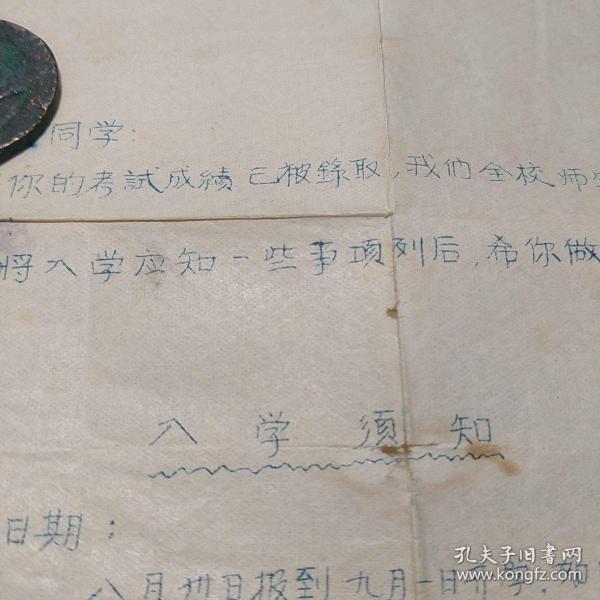 同学:
你的考試成績已被錄取,我们全校师生
将入学应知一些事項列后,希你做
入学須知
日期:
八月卅日报到九月一日开学.如
孔夫子旧書网
www.kongfz.com